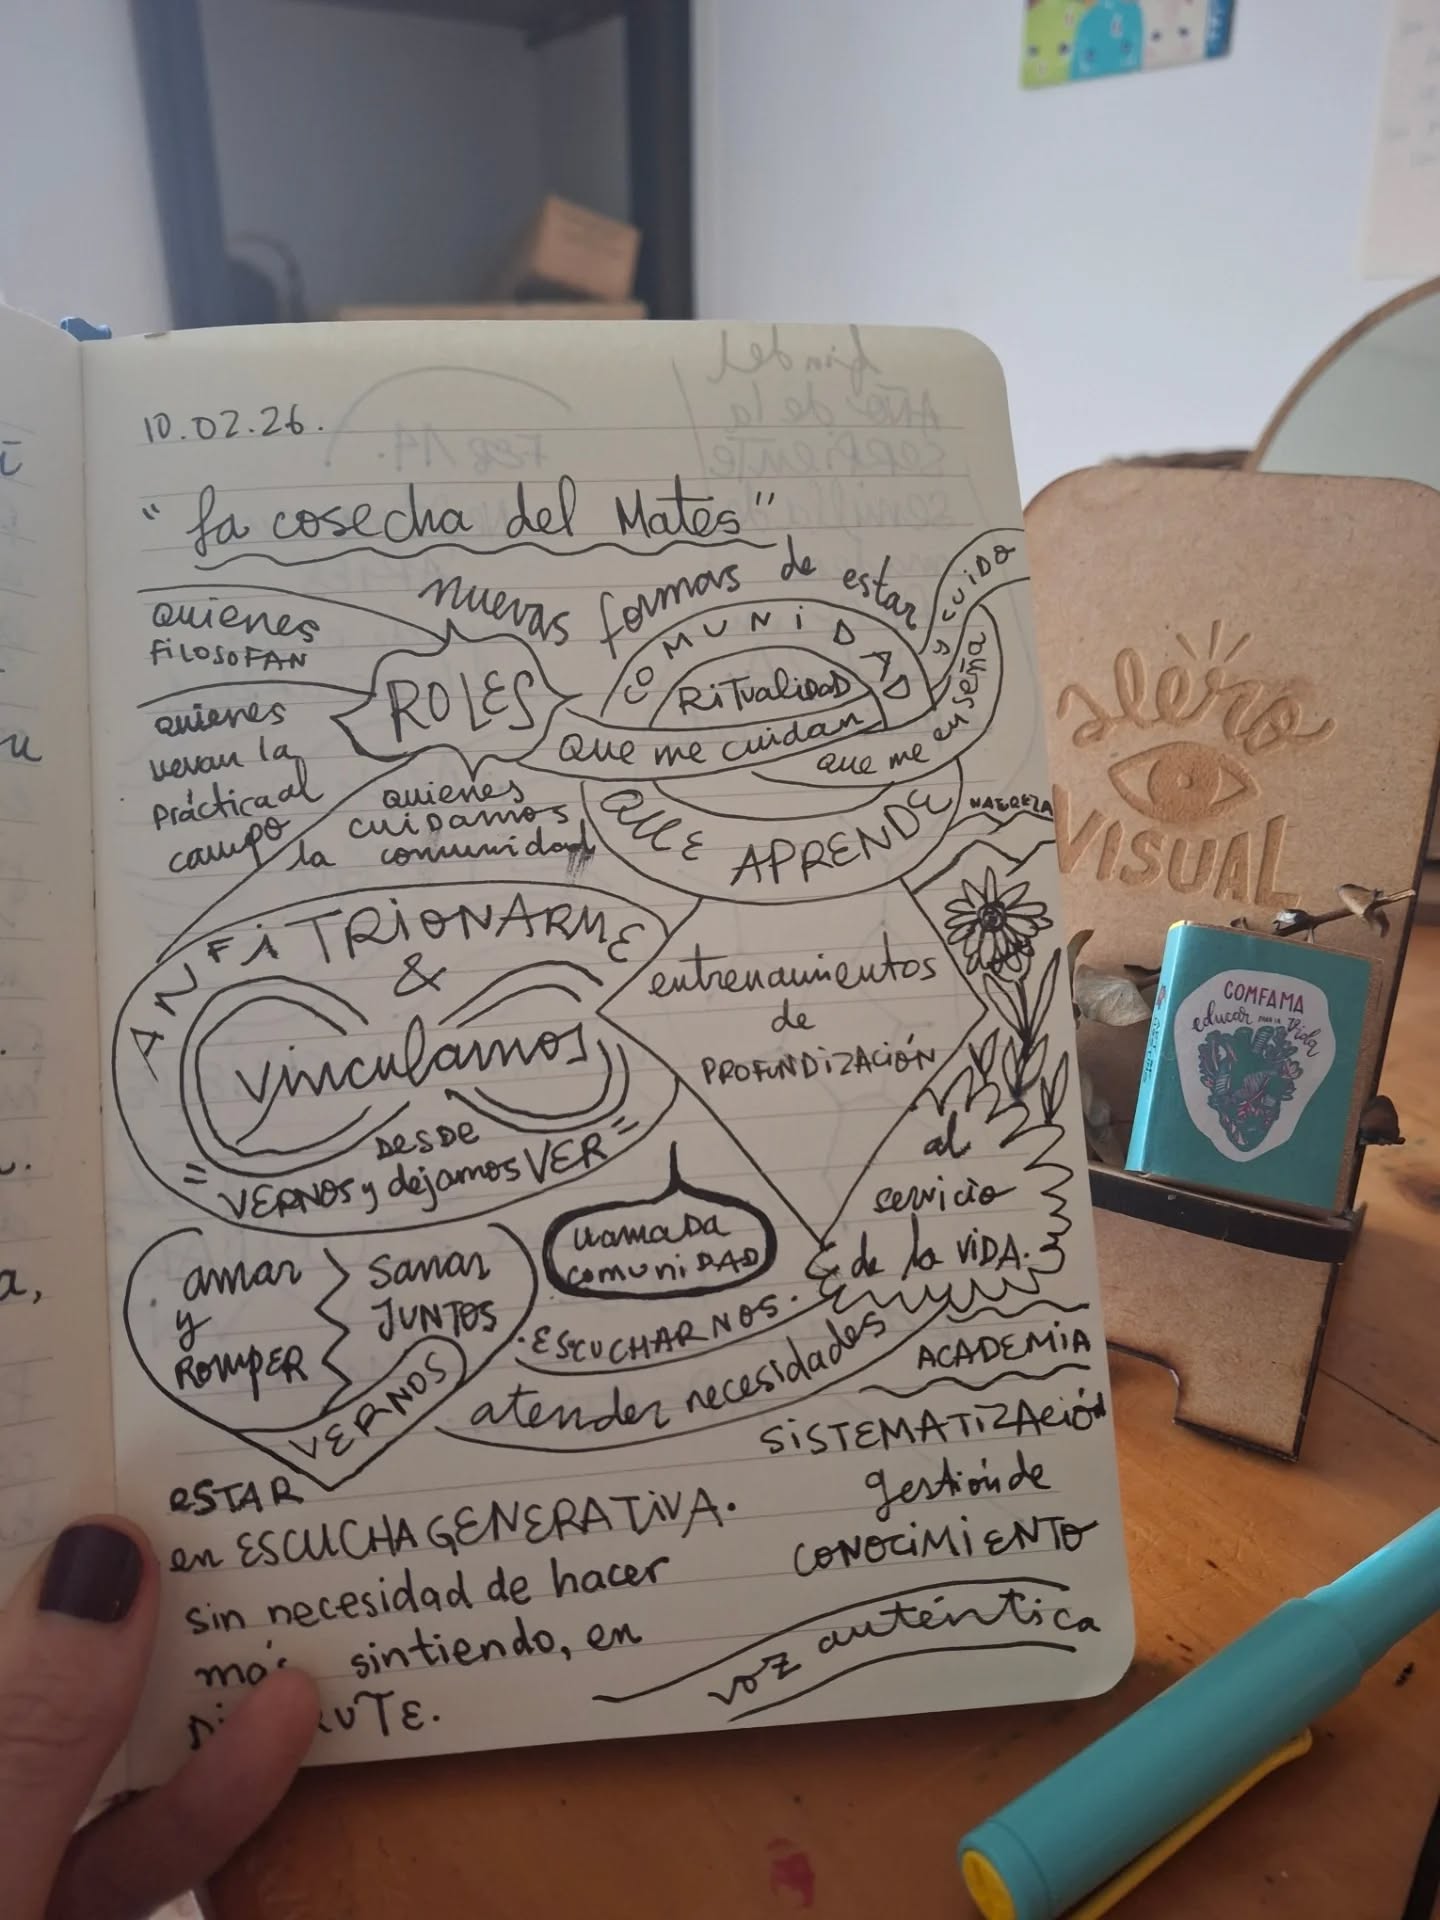 10.02.26.
"La cosecha del Matés"
nuevas formas de estar
QUIENES
FILOSOFAN
quienes
llevan la
práctica al
campo
ROLES
quienes
cuidamos
la comunidad
COMUNIDAD
RITUALIDAD
QUE ME CUIDAN
y CUIDO
que me enseña
QUE APRENDE
NATUREZA
ANFITRIONARME
&
vinculamos
DESDE
VERNOS y dejamos VER
entrenamientos
de
PROFUNDIZACIÓN
al
servicio
de la VIDA.
amar
y
ROMPER
sanar
JUNTOS
VERNOS
llamada
comuniDAD
·ESCUCHARNOS.
atender necesidades
ACADEMIA
SISTEMATIZACIÓN
gestión de
CONOCIMIENTO
voz auténtica
ESTAR
en ESCUCHA GENERATIVA.
sin necesidad de hacer
sintiendo, en
slero
VISUAL
COMFAMA
educar PARA LA Vida